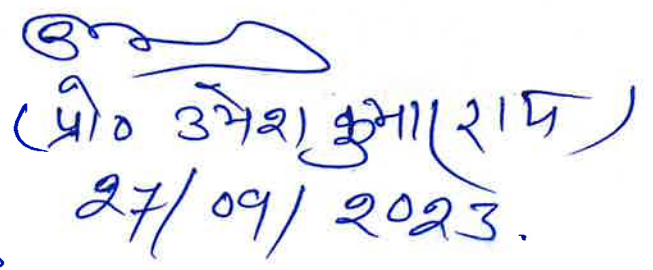 (प्रो० उमेश कुमार राय)
27/09/2023.